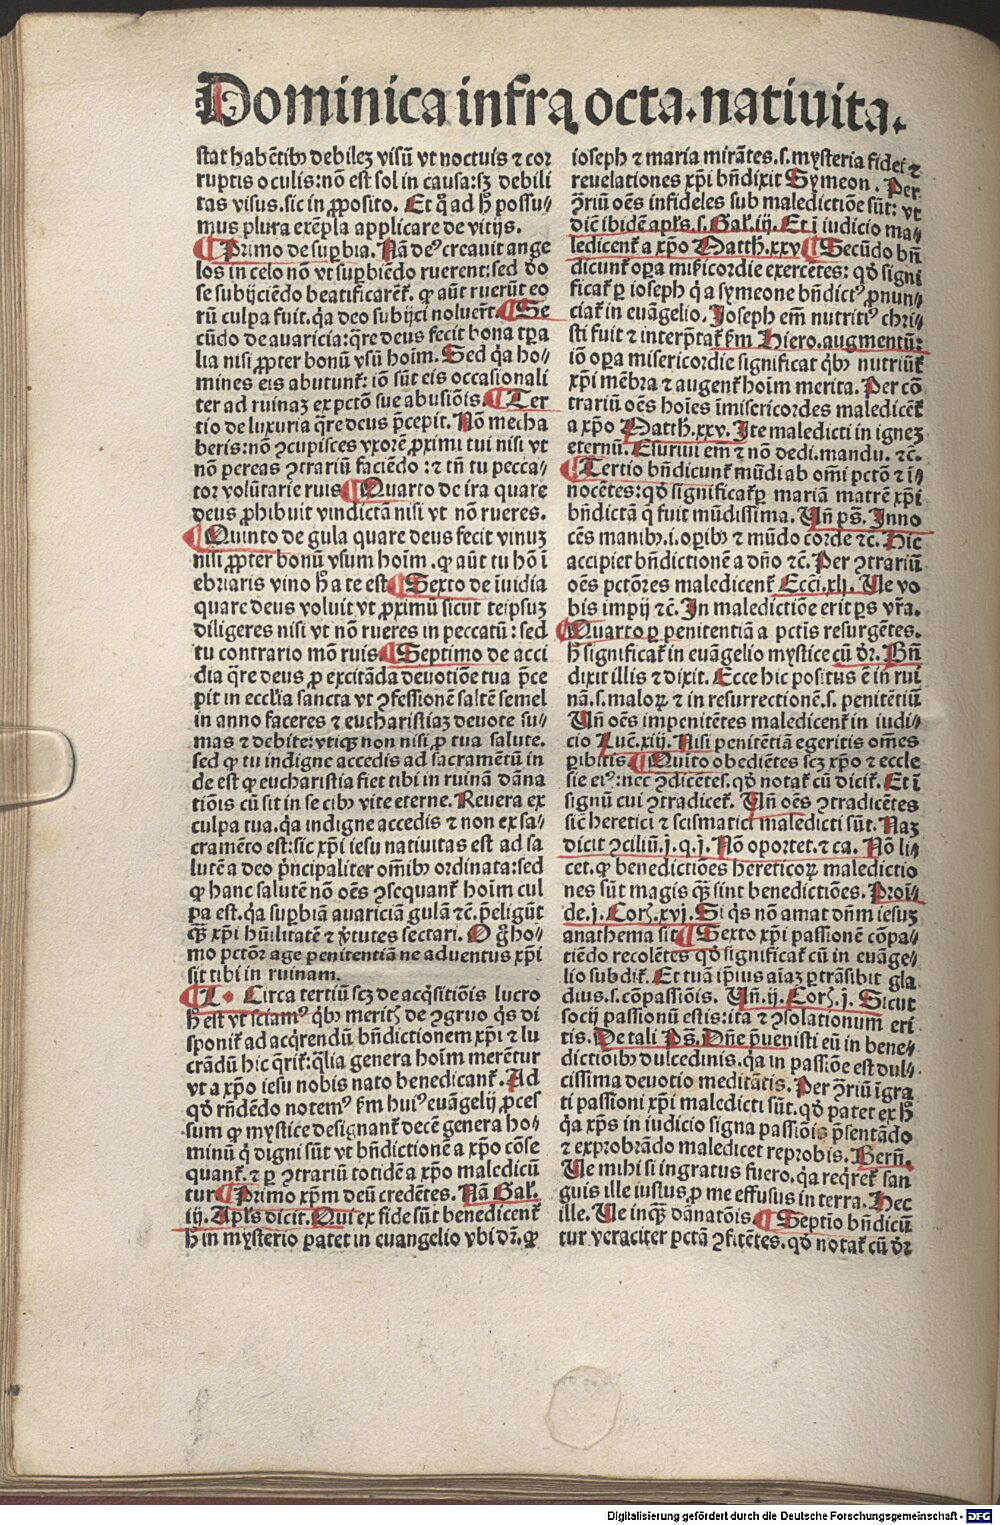 Dominica infra octa. natiuita.
stat habētibꝰ debileꝫ visū vt noctuis ⁊ cor
ruptis oculis: nō est sol in causa: sꝫ debili
tas visus. sic in ꝓposito. Et q̄ ad hͦ possu⸗
mus plura exēpla applicare de vitijs.
¶ Primo de suꝑbia. Nā deꝰ creauit ange
los in celo nō vt suꝑbiēdo ruerent: sed vo
se subijciēdo beatificarēt̉. ꝙ aūt ruerūt eo
rū culpa fuit. q̇a deo subijci noluer̄t. ¶ Se
cūdo de auaricia: q̄re deus fecit bona tꝑa
lia nisi ꝓpter bonū vsū hoīm. Sed q̇a ho⸗
mines eis abutunt̉: iō sūt eis occasionali
ter ad ruinaꝫ ex pctō sue abusiōis. ¶ Ter
tio de luxuria q̄re deus p̄cepit. Nō mecha
beris: nō ꝯcupisces vxorē ꝓximi tui nisi vt
nō pereas ꝯtrariū faciēdo: ⁊ tn̄ tu pecca⸗
tor volūtarie ruis ¶ Quarto de ira quare
deus ꝓhibuit vindictā nisi vt nō rueres.
¶ Quinto de gula quare deus fecit vinuꝫ
nisi ꝓpter bonū vsum hoīm. ꝙ aūt tu hō ī
ebriaris vino hͦ a te est ¶ Sexto de īuidia
quare deus voluit vt ꝓximū sicut teipsuꝫ
diligeres nisi vt nō rueres in peccatū: sed
tu contrario mō ruis. ¶ Septimo de acci
dia q̄re deus ꝓ excitāda deuotiōe tua p̄ce
pit in eccl̄ia sancta vt ꝯfessionē saltē semel
in anno faceres ⁊ eucharistiaꝫ deuote su⸗
mas ⁊ debite: vtiqꝫ non nisi ꝓ tua salute.
sed ꝙ tu indigne accedis ad sacramētū in
de est ꝙ eucharistia fiet tibi in ruinā dāna
tiōis cū sit in se cibꝰ vite eterne. Reuera ex
culpa tua. q̇a indigne accedis ⁊ non ex sa⸗
cramēto est: sic xp̄i iesu natiuitas est ad sa
lutē a deo p̄ncipaliter om̄ibꝰ ordinata: sed
ꝙ hanc salutē nō oēs ꝯsequant̉ hoīm cul
pa est. q̇a suꝑbiā auariciā gulā ⁊c̄. p̄eligūt
q̄ꝫ xp̄i hūilitatē ⁊ v̓tutes sectari. O g̊ ho⸗
mo pctōr age penitentiā ne aduentus xp̄i
sit tibi in ruinam.
¶ L. Circa tertiū scꝫ de acq̇sitiōis lucro
hͦ est vt sciamꝰ q̇bꝰ meritꝭ de ꝯgruo q̇s di
sponit̉ ad acq̇rendū bn̄dictionem xp̄i ⁊ lu
crādū hic q̄rit̉: q̄lia genera hoīm merētur
vt a xp̄o iesu nobis nato benedicant̉. Ad
qd̓ rn̄dēdo notemꝰ ẜm huiꝰ euāgelij ꝓces
sum ꝙ mystice designant̉ decē genera ho⸗
minū q̇ digni sūt vt bn̄dictionē a xp̄o cōse
quant̉. ⁊ ꝑ ꝯtrariū totidē a xp̄o maledicū
tur ¶ Primo xp̄m deū credētes. Nā Gal̓.
iij. Apl̓s dicit. Qui ex fide sūt benedicent̉
hͦ in mysterio patet in euangelio vbi dr̄. ꝙ
ioseph ⁊ maria mirātes. s. mysteria fidei ⁊
reuelationes xp̄i bn̄dixit Symeon. Per
ꝯ̄riū oēs infideles sub maledictiōe sūt: vt
dic̄ ibidē apl̓s. s. Gal̓. iij. Et ī iudicio ma⸗
ledicent̉ a xp̄o Matth. xxv ¶ Secūdo bn̄
dicunt̉ oꝑa mīsericordie exercētes: qd̓ signi
ficat̉ ꝑ ioseph q̇ a symeone bn̄dictꝰ ꝓnun⸗
ciat̉ in euāgelio. Joseph em̄ nutritiꝰ chri⸗
sti fuit ⁊ interp̄tat̉ ẜm Hiero. augmentū:
iō oꝑa misericordie significat q̇bꝰ nutriūt̉
xp̄i mēbra ⁊ augent̉ hoīm merita. Per cō
trariū oēs hoīes īmisericordes maledicēt̉
a xp̄o Matth. xxv. Ite maledicti in igneꝫ
eternū. Esuriui em̄ ⁊ nō dedi. mandu. ⁊c̄.
¶ Tertio bn̄dicunt̉ mūdi ab om̄i pctō ⁊ i⸗
nocētes: qd̓ significat̉ ꝑ mariā matrē xp̄i
bn̄dictā q̄ fuit mūdissima. Vn̄ ps̄. Inno
cēs manibꝰ. i. oꝑibꝰ ⁊ mūdo corde ⁊c̄. Hic
accipiet bn̄dictionē a dn̄o ⁊c̄. Per ꝯtrariū
oēs pctōres maledicent̉ Ecc̄i. xlj. Ue vo
bis impij ⁊c̄. In maledictiōe erit ps vr̄a.
¶ Quarto ꝑ penitentiā a pctīs resurgētes.
hͦ significat̉ in euāgelio mystice cū dr̄. Bn̄
dixit illis ⁊ dixit. Ecce hic positus ē in rui
nā. s. maloꝝ ⁊ in resurrectionē. s. penitētiū
Vn̄ oēs impenitētes maledicent̉ in iudi⸗
cio Luc̄. xiij. Nisi penitētiā egeritis om̄es
ꝑibitis. ¶ Quīto obediētes scꝫ xp̄o ⁊ eccle
sie eiꝰ: nec ꝯdicētes. qd̓ notat̉ cū dicit̉. Et ī
signū cui ꝯtradicet̉. Vn̄ oēs ꝯtradicētes
sic̄ heretici ⁊ scismatici maledicti sūt. Naꝫ
dicit ꝯciliū. j. q. j. Nō oportet. ⁊ ca. Nō li⸗
cet. ꝙ benedictiōes hereticoꝝ maledictio
nes sūt magis q̄ꝫ sint benedictiōes. Proī⸗
de. j. Corꝭ. xvj. Si q̇s nō amat dn̄m iesuꝫ
anathema sit ¶ Sexto xp̄i passionē cōpa⸗
tiēdo recolētes qd̓ significat̉ cū in euāge⸗
lio subdit̉. Et tuā ip̄ius aīaꝫ ꝑtrāsibit gla
dius. s. cōpassiōis. Vn̄. ij. Corꝭ. j. Sicut
socij passionū estis: ita ⁊ ꝯsolationum eri
tis. De tali Ps̄. Dn̄e p̄uenisti eū in bene⸗
dictioībꝰ dulcedinis. q̇a in passiōe est dul⸗
cissima deuotio meditātis. Per ꝯ̄riū īgra
ti passioni xp̄i maledicti sūt. qd̓ patet ex hͦ
q̇a xp̄s in iudicio signa passiōis p̄sentādo
⁊ exprobrādo maledicet reprobis. Bern̄.
Ue mihi si ingratus fuero. q̇a req̇ret̉ san
guis ille iustus ꝓ me effusus in terra. Hec
ille. Ue inq̄ꝫ dānatōis. ¶ Septīo bn̄dicū
tur veraciter pctā ꝯfitētes. qd̓ notat̉ cū dr̄
Digitalisierung gefördert durch die Deutsche Forschungsgemeinschaft - DFG